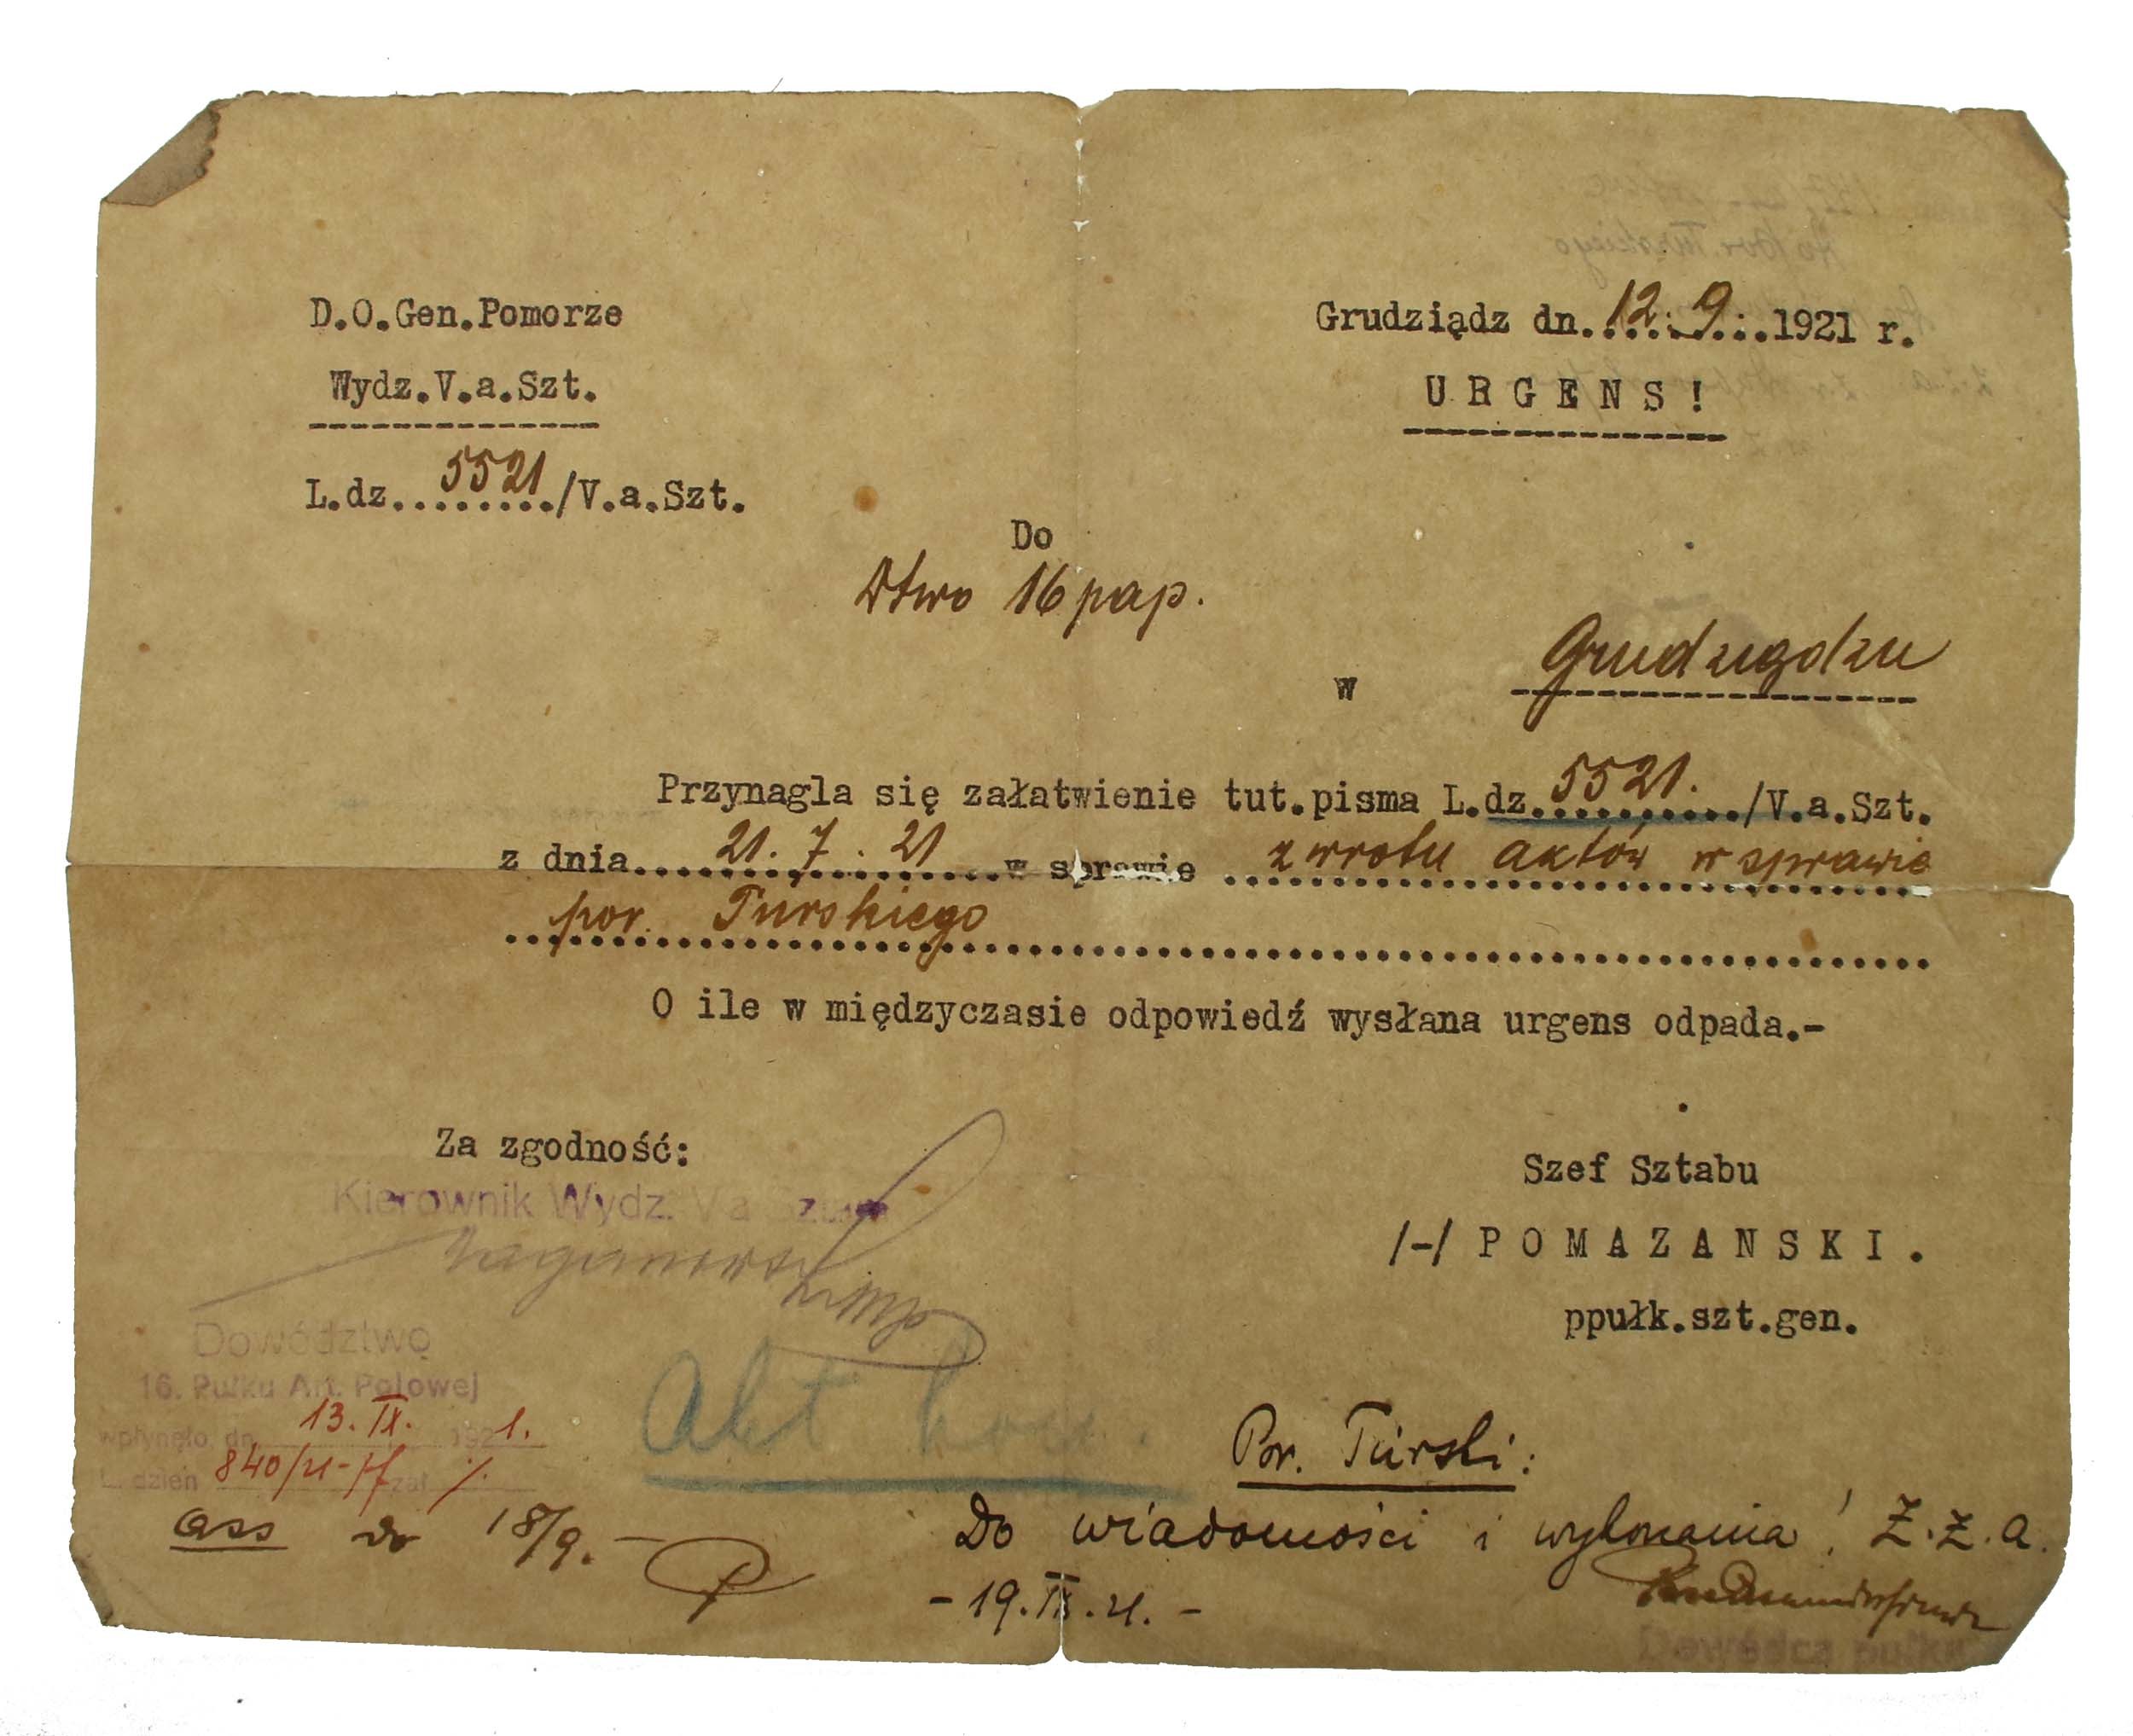 D.O.Gen.Pomorze
Grudziądz dn. 12. 9. 1921 r.
Wydz.V.a.Szt.
URGENS!
L.dz. 5521 /V.a.Szt.
Do
Dtwo 16 pap.
w Grudziądzu
Przynagla się załatwienie tut.pisma L.dz. 5521. /V.a.Szt.
z dnia 21. 7. 21 w sprawie zwrotu aktów w sprawie
por. Turskiego
O ile w międzyczasie odpowiedź wysłana urgens odpada.-
Za zgodność:
Kierownik Wydz. Va Sztabu
Szef Sztabu
/-/ POMAZANSKI.
ppułk.szt.gen.
Dowództwo
16. Pułku Art. Polowej
wpłynęło dn. 13. IX. 1921.
L. dzien 840/21 zał. %
Akt
Por. Turski:
ass do 18/9.-
Do wiadomości i wykonania! Z.Z.a.
- 19. IX. 21. -
Dowódca pułku